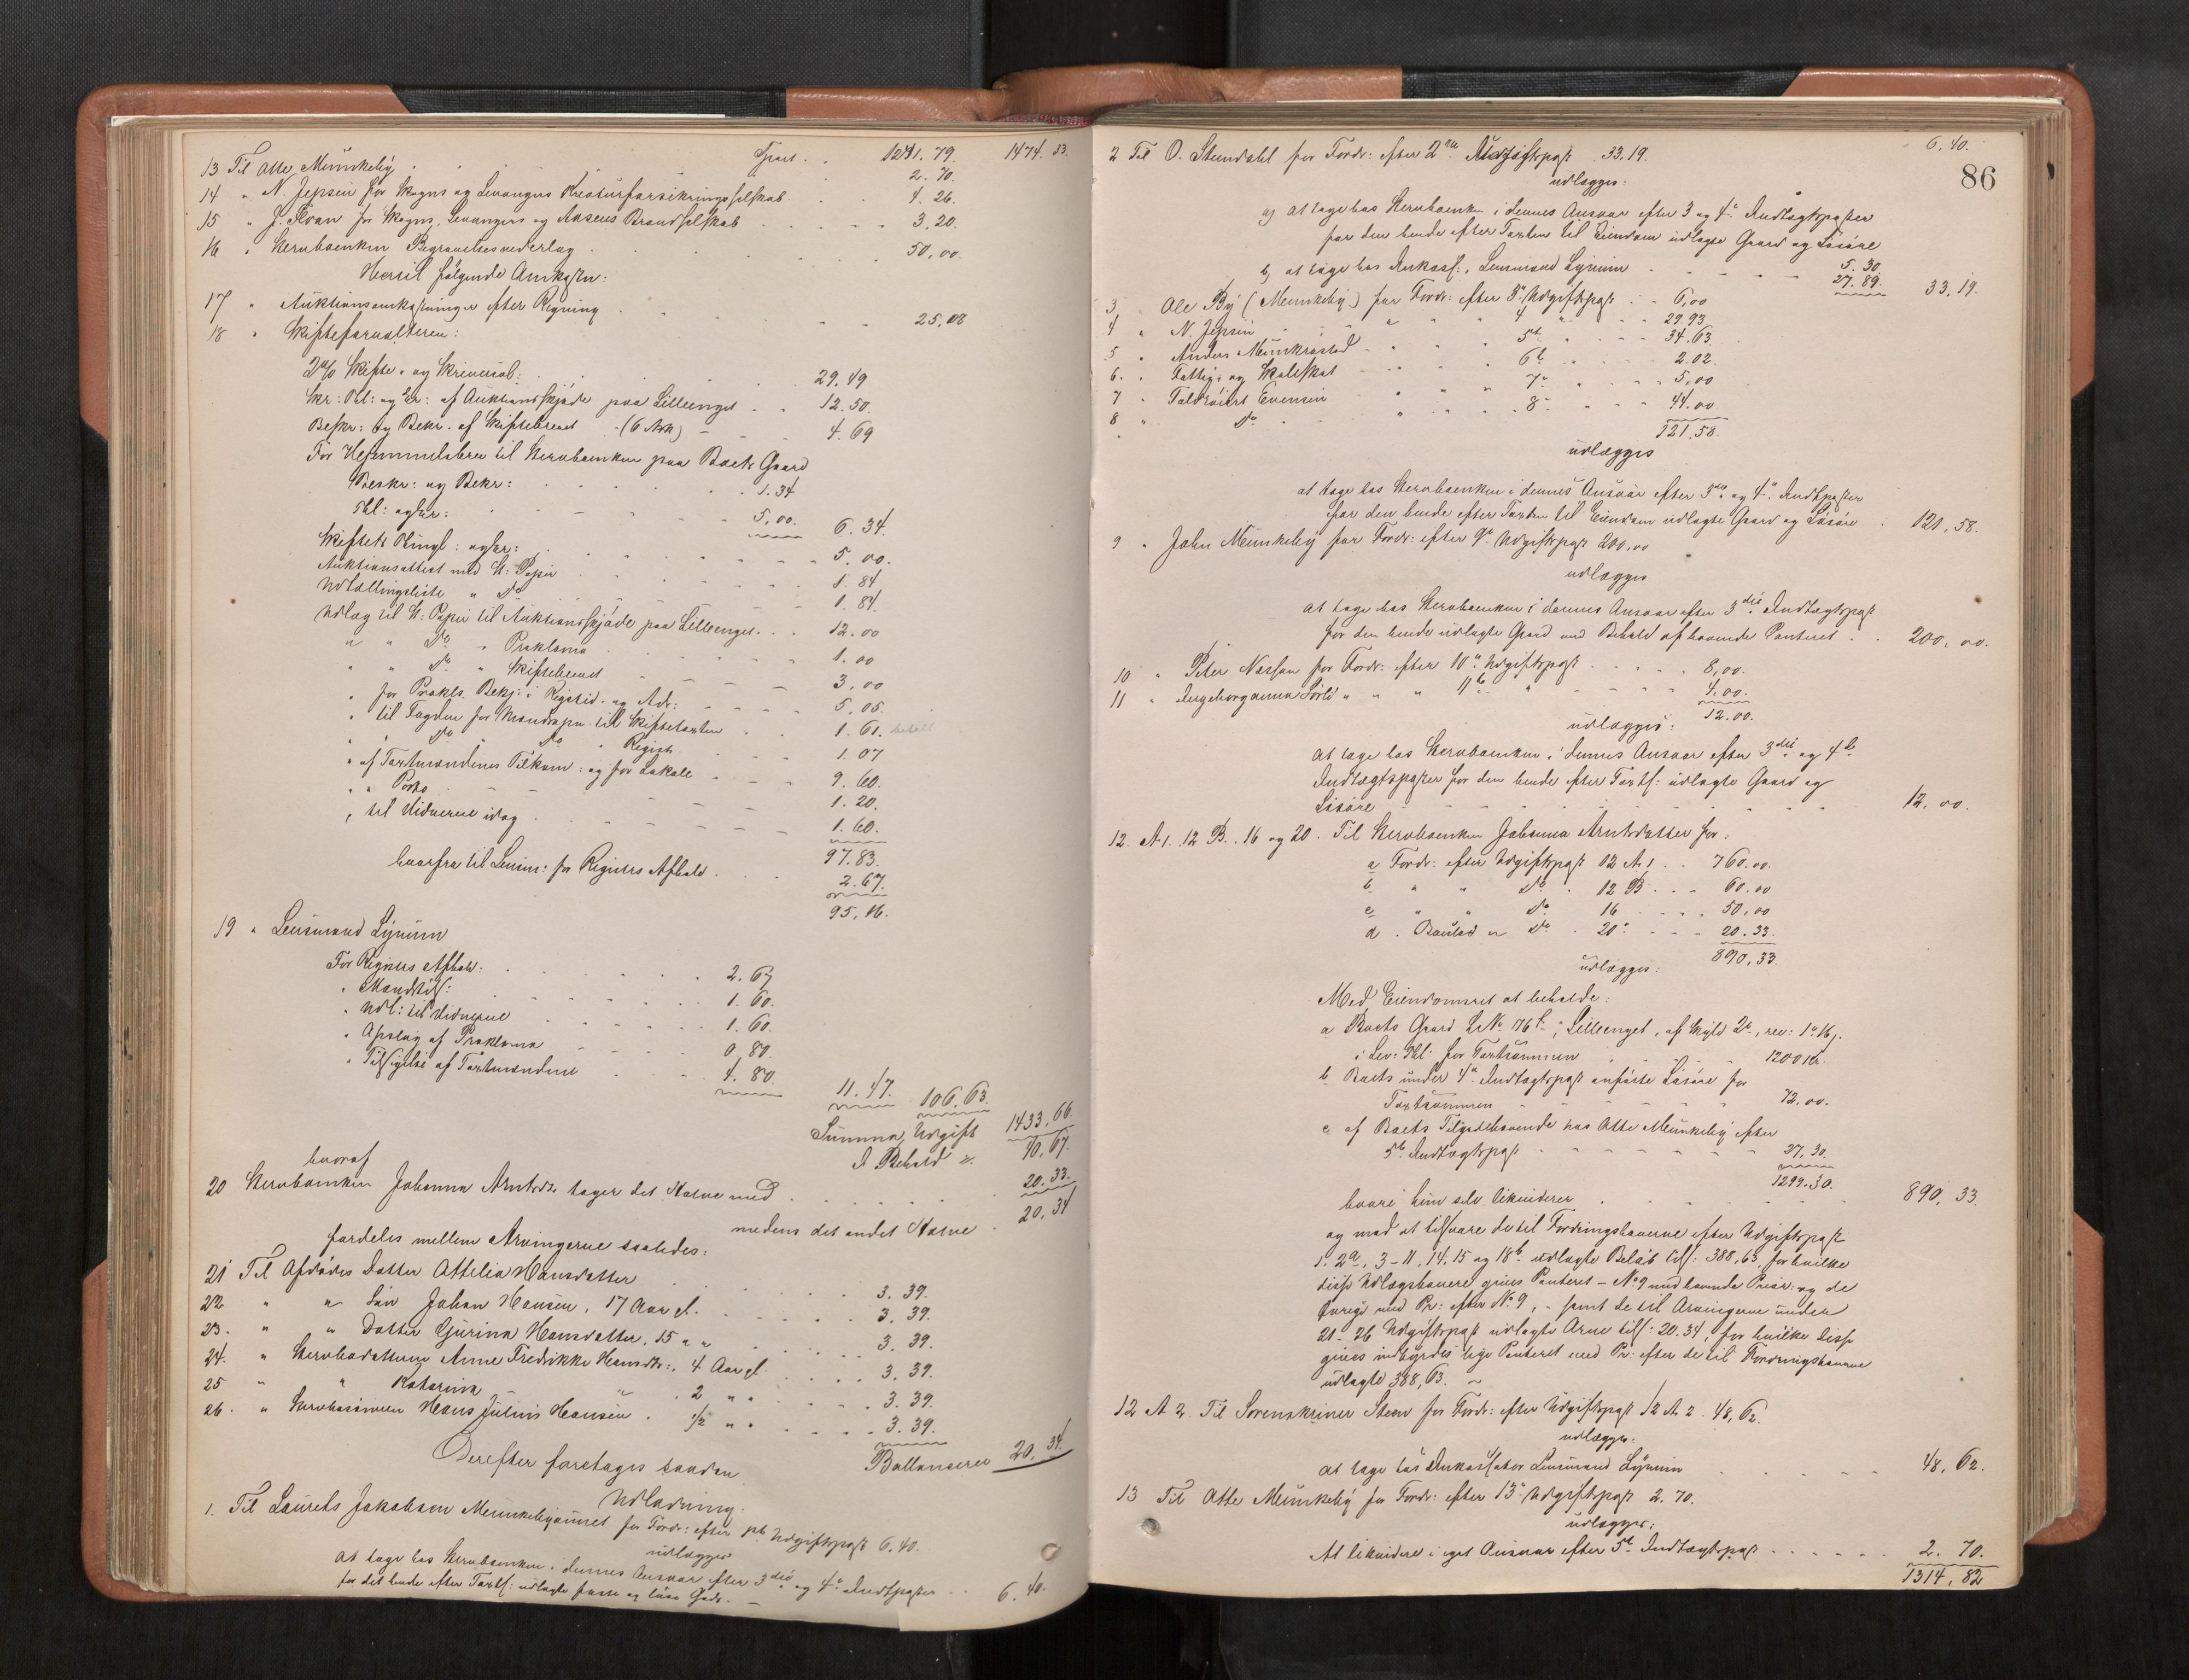 13 Til Otte Munkeby . . . Transp. . . 1241. 79. 1474. 33.
2. 70.
14 " N. Jepsen for Skogns og Levangers Kreaturforsikringsselskab . . 4. 26.
15 " J. Svan for Skogns, Levangers og Aasens Brandselskab . . . 3. 20.
16 " Stervboenken Begravelsesvederlag . . . 50,00.
Hertil følgende Omkostn:
17 " Auktionsomkostninger efter Regning . . . 25,08
18 " Skifteforvalteren:
2% Skifte- og Skriversal: . . . 29. 49
Skr: Thl: og Gr: af Auktionsskjøde paa Lilleenget . . 12. 50.
Beskr: og Bekr. af Skiftebrevet (6 Ark) . . 4. 69
For Hjemmelsbrev til Stervboenken paa Boets Gaard
Beskr: og Bekr: . . . 1. 34
Thl: og Gr: . . . 5,00. 6. 34.
Skiftets Kingl: og Gr: . . . 5. 00.
Auktionsattest med St: Papir . . . 1. 84
Udtællingsliste " Do . . . 1. 84.
Udlæg til St: Papir til Auktionsskjøde paa Lilleenget . . . 12. 00
" " Do " Proklama . . . 1. 00
" " Do " Skiftebrevet . . . 3. 00
" for Prokls. Bekj: i Rigstid. og Adr: . . . 5. 05.
" til Fogden for Mandsopn. til Skiftetaxten . . 1. 61. betalt
" Do Do " Registr. . . 1. 07
" af Taxtmændenes Tilkom: og for Lokale . . . 9. 60.
" " Porto . . . 1. 20.
" til Vidnerne idag . . . 1. 60.
97. 83.
hvorfra til Lensm: for Registrs Afhold . . . 2. 67.
95, 16.
19 " Lensmand Lynum
For Registrs Afhold: . . . 2. 67
" Mandstils: . . . 1. 60.
" Udl: til Vidnerne . . . 1. 60.
" Opslag af Proklama . . . 0,80.
" Tilsigelse af Taxtmændene . . . 4. 80. 11. 47. 106. 63.
Summa Udgift 1433. 66.
I Behold Kr. 40. 67.
hvoraf
20 Stervboenken Johanna Arntsdr. tager det Halve med . . . 20. 33.
medens det andet Halve . 20. 34
fordeles mellem Arvingerne saaledes:
21 Til Afdødes Datter Ottelia Hansdatter . . . 3. 39.
22 " " Søn Johan Hansen, 17 Aar gl. . . . 3. 39.
23. " " Datter Gjurina Hansdatter, 15 " " . . . 3. 39.
24. " Stervbodatteren Anne Fredrikke Hansdtr:, 4 Aar gl. . . . 3. 39.
25 " " Katarina " , 2 " " . . . 3. 39.
26. " Stervbosønnen Hans Julius Hansen . 1/2 " " . . . 3. 39.
Ballancerer 20. 34.
Derefter foretages saadan
Udlodning.
1. Til Laurits Jakobsen Munkebyaunet for Fordr: efter 1ste Udgiftspost 6. 40.
udlægges
at tage hos Stervboenken i dennes Ansvar efter 3die og 4de Indtpøster
for det hende efter Taxts: udlagte faste og løse Gods. — . . 6. 40.
86
6. 40.
2 Til O. Stendahl for Fordr: efter 2den Udgiftspost . 33. 19.
udlægges:
a) at tage hos Stervboenken i dennes Ansvar efter 3 og 4de Indtægtsposter
for den hende efter Taxten til Eiendom udlagte Gaard og Løsøre 5. 30.
b) at tage hos Inkass:, Lensmand Lynum . . . 27. 89. 33. 19.
3 " Ole By (Munkeby) for Fordr: efter 3die Udgiftspost . . 6,00
4 " N. Jepsen " " " 4 " . . 29. 93
5 " Anders Munkrøstad . . . 5te . . . 34. 63.
6. " Fattig- og Skoleskat . . . 6te . . . 2. 02.
7 " Evensen " " 7de . . . 5,00
8 " Do . . . 8de . . . 44. 00
121. 58.
udlægges
at tage hos Stervboenken i dennes Ansvar efter 3die og 4de Indtposter
for den hende efter Taxten til Eiendom udlagte Gaard og Løsøre . 121. 58.
9 " John Munkeby for Fordr: efter 9de Udgiftspost 200,00
udlægges
at tage hos Stervboenken i dennes Ansvar efter 3die Indtægtspost
for den hende udlagte Gaard med Behold af havende Panteret . . 200. 00.
10 " Peter Nessan for Fordr: efter 10de Udgiftspost . . . 8,00.
11 " Ingeborganna " " " 11te " . . . 4. 00.
12. 00.
udlægges:
at tage hos Stervboenken i dennes Ansvar efter 3die og 4de
Indtægtsposter for den hende efter Taxts: udlagte Gaard og
Løsøre . . . 12. 00.
12. A1. 12 B. 16 og 20. Til Stervboenken Johanna Arntsdatter for:
a Fordr: efter Udgiftspost 12 A1 . . 760. 00.
b " " Do . 12 B . . . 60. 00
c " " Do 16 . . . 50,00
d . Boslod " Do . 20de . . . 20. 33.
890. 33.
udlægges:
Med Eiendomsret at beholde:
a Boets Gaard LNo 76b, Lilleenget, af Skyld 2o, rev: 1o 16s.
i Lev: Thl: for Taxtsummen . . . 1200 Kr.
b Boets under 4de Indtægtspost anførte Løsøre for
Taxtsummen . . . 72. 00.
c af Boets Tilgodehavende hos Otte Munkeby efter
5te Indtægtspost . . . 27. 30.
1299. 30.
hvori hun selv likviderer . . . 890. 33.
og mod at tilsvare de til Fordringshaverne efter Udgiftspost
1. 2a, 3-11, 14, 15 og 18b udlagte Beløb tils: 388,63, for hvilke
disse Udlægshavere gives Panteret – No 9 med havende Prior: og de
Øvrige med Pr: efter No 9, – samt de til Arvingerne under
21-26 Udgiftspost udlagte Arve tils: 20. 34, for hvilke disse
gives indbyrdes lige Panteret med Pr: efter de til Fordringshaverne
udlagte 388,63. —
12 A 2. Til Sorenskriver Steen for Fordr: efter Udgiftspost 12 A 2. 48,62.
udlægges:
at tage hos Inkassator Lensmand Lynum . . . 48, 62.
13 Til Otte Munkeby for Fordr: efter 13de Udgiftspost 2. 70.
udlægges:
At likvidere i eget Ansvar efter 5te Indtægtspost . . . 2. 70.
1314, 82